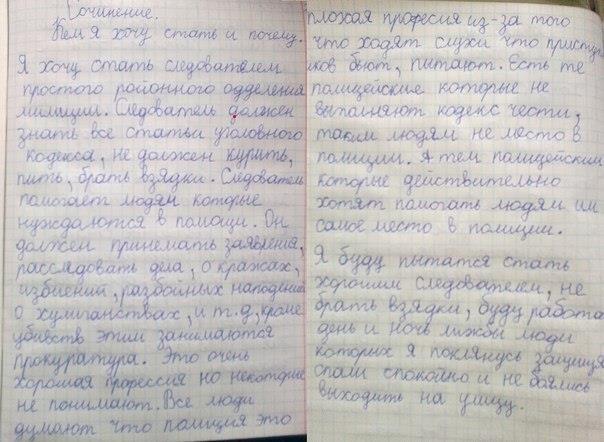 Сочинение.
Кем я хочу стать и почему.
Я хочу стать следователем
простого районного одделения
милиции. Следователь должен
знать все статьи уголовного
кодекса, не должен курить,
пить, брать взядки. Следователь
помогает людям которые
нуждаются в помощи. Он
должен принемать заявления,
расследовать дела, о кражах,
избиений, разбойных нападений
о хулиганствах, и т.д, кроме
убивств этим занимаются
прокуратура. Это очень
хорошая профессия но некоторые
не понимают. Все люди
думают что полиция это
плохая професия из-за того
что ходят слухи что приступ
ников бьют, пытают. Есть те
полицейские которые не
выполняют кодекс чести,
таким людям не место в
полиции. А тем полицейским
которые действительно
хотят помогать людям им
самое место в полиции.
Я буду пытатся стать
хорошим следователем, не
брать взядки, буду работа
день и ночь лижбы люди
которых я поклянусь защища
спали спокойно и не боялись
выходить на улицу.